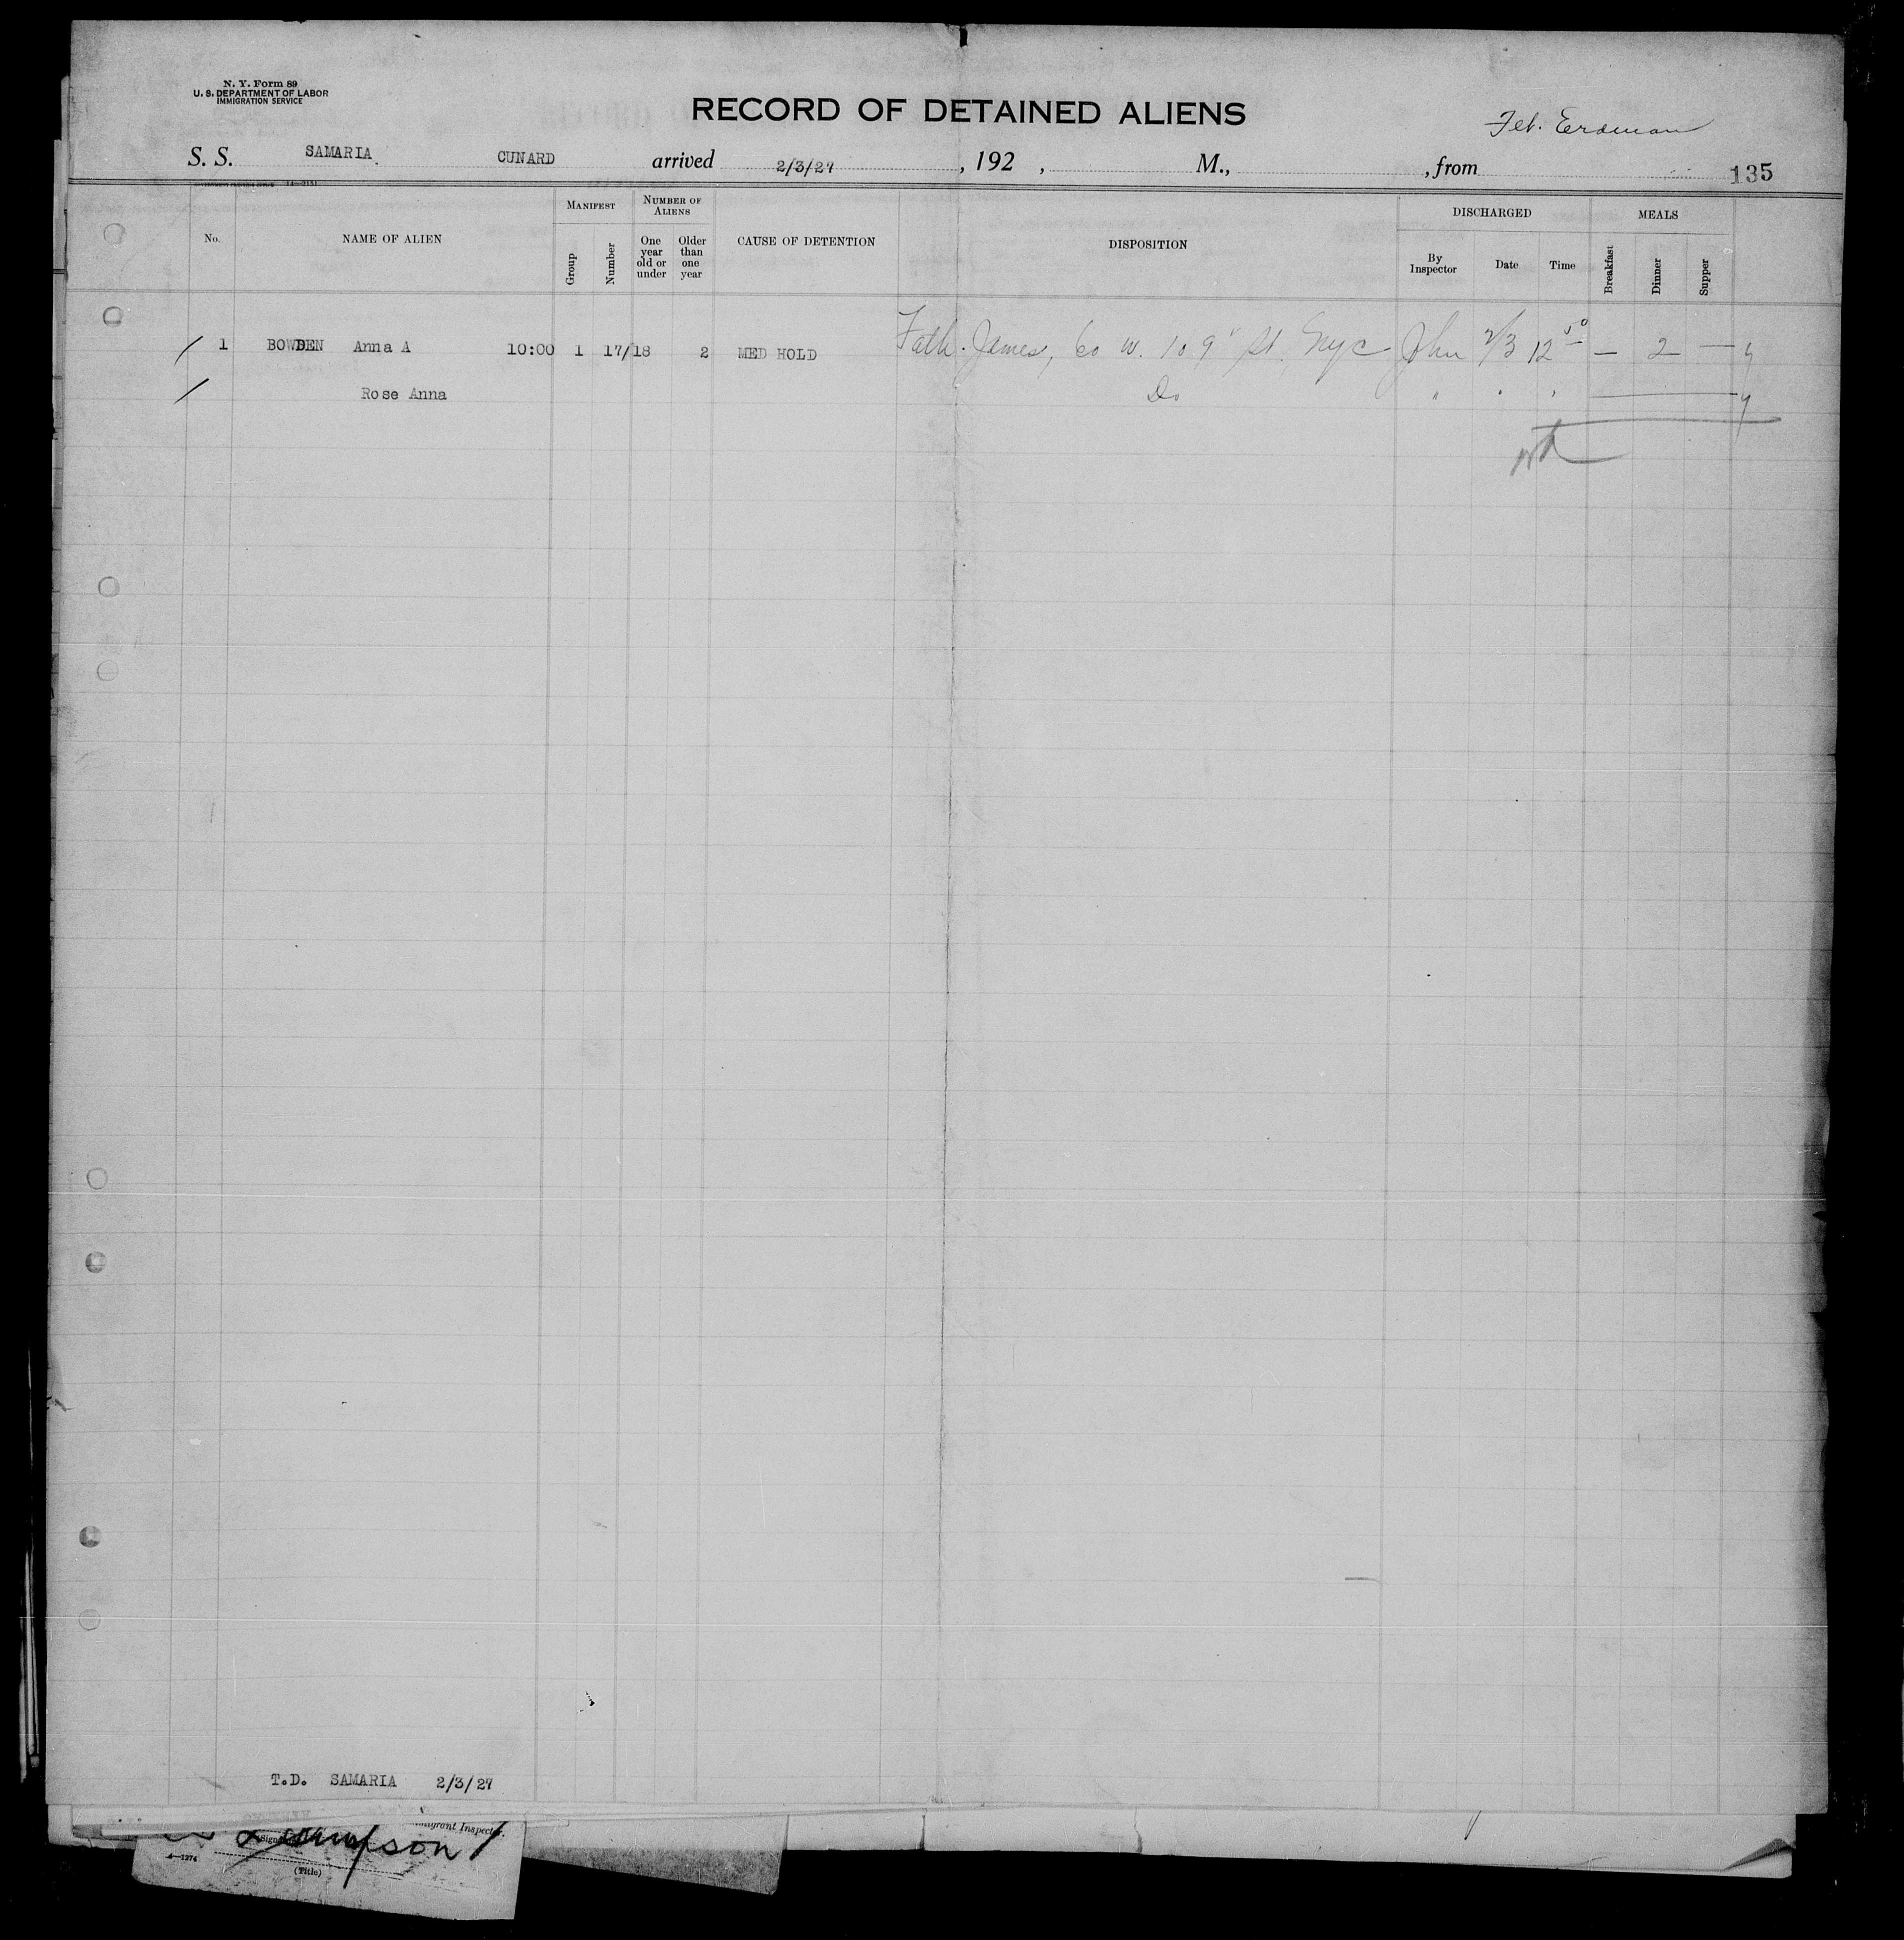 N. Y. Form 89
U. S. DEPARTMENT OF LABOR
IMMIGRATION SERVICE
RECORD OF DETAINED ALIENS
Erdman
S. S. SAMARIA. CUNARD arrived 2/3/27, 192 , M., , from 135
No. NAME OF ALIEN MANIFEST Group Number NUMBER OF ALIENS One year old or under Older than one year CAUSE OF DETENTION DISPOSITION DISCHARGED By Inspector Date Time MEALS Breakfast Dinner Supper
/ 1 BOWDEN Anna A 10:00 1 17/18 2 MED HOLD Fath. James, 60 W. 109" St. Nyc John 2/3 12 50 — 2 —
/ Rose Anna Do " " "
T.D. SAMARIA 2/3/27
Immigrant Inspector.
4—1274
(Title)